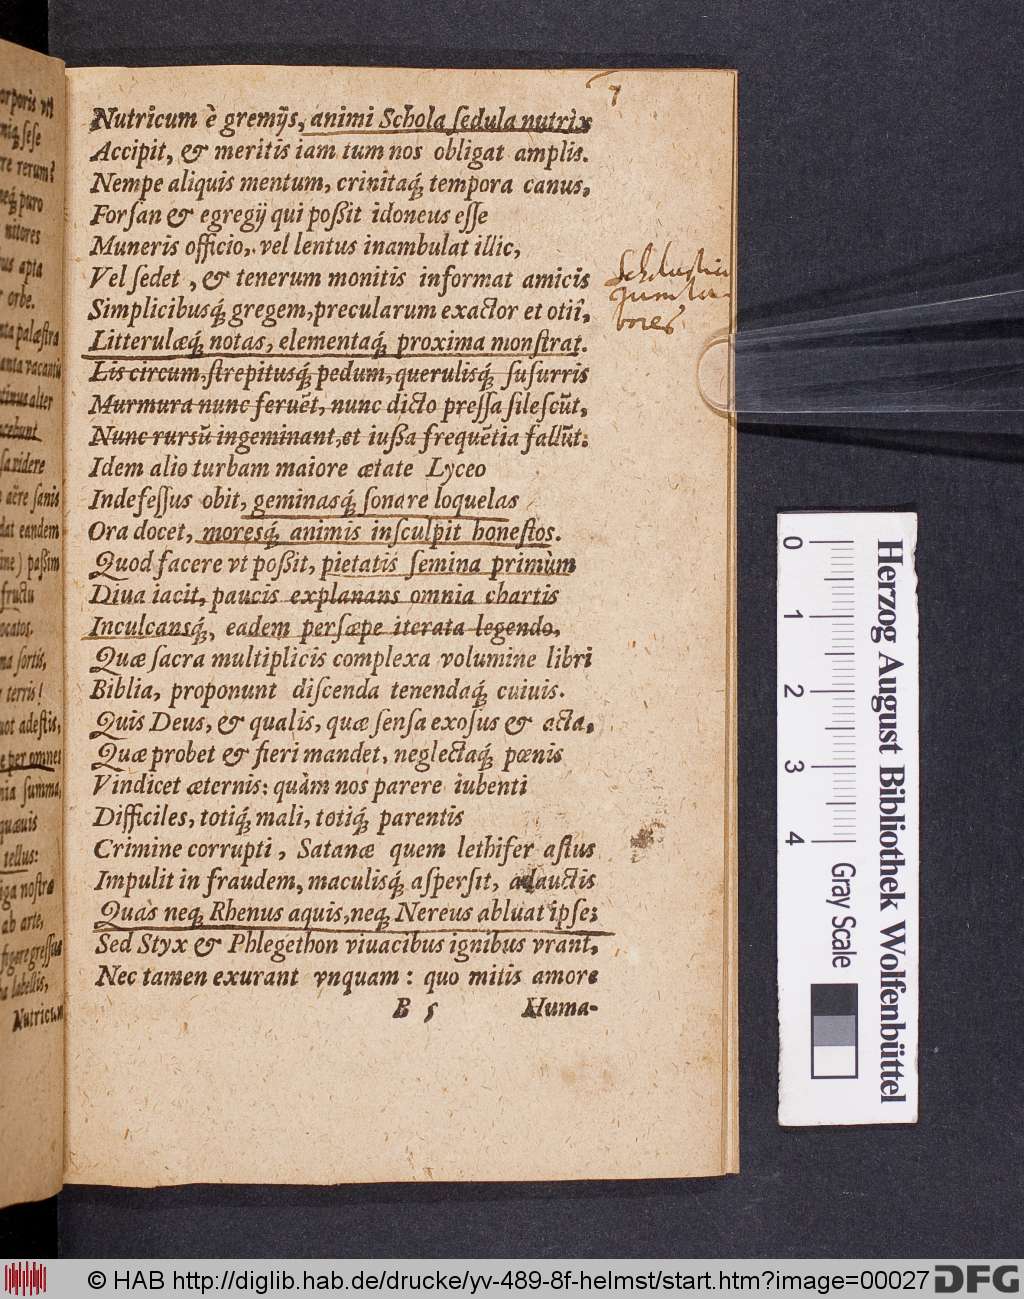 7
Nutricum è gremijs, animi Schola ſedula nutrix
Accipit, & meritis iam tum nos obligat amplis.
Nempe aliquis mentum, crinitaq́; tempora canus,
Forſan & egregij qui poßit idoneus eſſe
Muneris officio, vel lentus inambulat illic,
Vel ſedet, & tenerum monitis informat amicis
Simplicibusq́; gregem, precularum exactor et otiî,
Litterulæq́; notas, elementaq́; proxima monſtrat.
Lis circum, ſtrepitusq́; pedum, querulisq́; ſuſurris
Murmura nunc feruẽt, nunc dicto preſſa ſileſcũt,
Nunc rursũ ingeminant, et iußa frequẽtia fallũt:
Idem alio turbam maiore ætate Lyceo
Indefeſſus obit, geminasq́; ſonare loquelas
Ora docet, moresq́; animis inſculpit honeſtos.
Quod facere vt poßit, pietatis ſemina primùm
Diua iacit, paucis explanans omnia chartis
Inculcansq́;, eadem perſæpe iterata legendo,
Quæ ſacra multiplicis complexa volumine libri
Biblia, proponunt diſcenda tenendaq́; cuiuis.
Quis Deus, & qualis, quæ ſenſa exoſus & acta,
Quæ probet & fieri mandet, neglectaq́; pœnis
Vindicet æternis: quàm nos parere iubenti
Difficiles, totiq́; mali, totiq́; parentis
Crimine corrupti, Satanæ quem lethifer aſtus
Impulit in fraudem, maculisq́; aſperſit, adauctis
Quas neq; Rhenus aquis, neq; Nereus abluat ipſe;
Sed Styx & Phlegethon viuacibus ignibus vrant,
Nec tamen exurant vnquam: quo mitis amore
B 5 Huma-
bores
orporis
ſeſe
re rerum?
puro
nitores
us apta
orbe.
palæſtra
alter
ſaxidere
aëre ſanis
dat eandem
paßim
fructu
ſortis,
terris!
adeſtis,
per omnes
ſumma,
quæuis
tellus:
noſtra
ab arte,
labellis,
Nutricum
Herzog August Bibliothek Wolfenbüttel
0 1 2 3 4
Gray Scale
© HAB http://diglib.hab.de/drucke/yv-489-8f-helmst/start.htm?image=00027
DFG